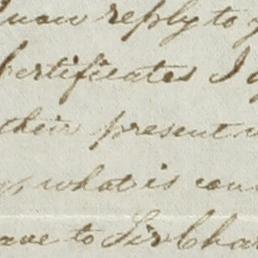 now reply to
Certificates I
their present
what is con
ave to Sir Char